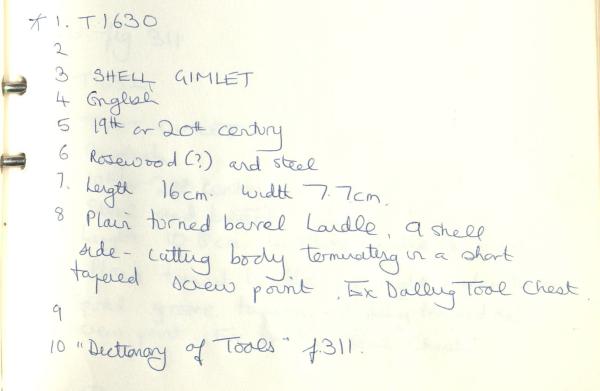 * 1. T1630
2
3 SHELL GIMLET
4 English
5 19th or 20th century
6 Rosewood (?) and steel
7. Length 16cm. Width 7.7cm.
8 Plain turned barrel handle. A shell
side-cutting body terminating in a short
tapered screw point. Ex Tool Chest.
9
10 "Dictionary of Tools" f.311.